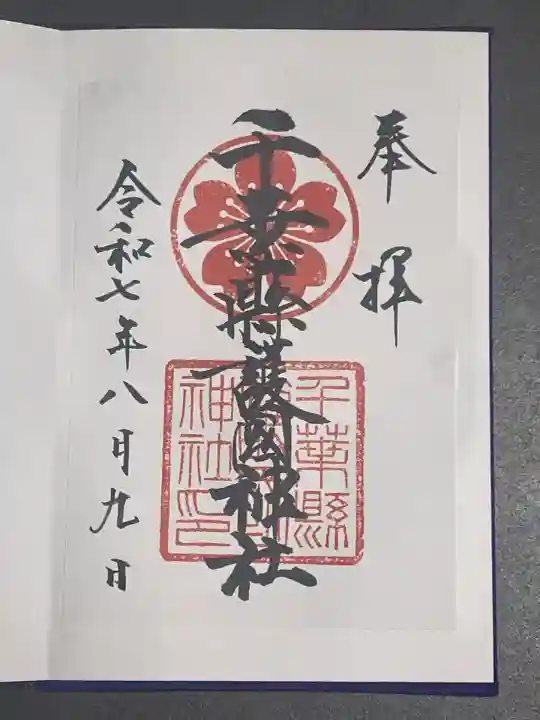 奉拝
千葉縣護國神社
千葉縣
護國神社印
令和七年八月九日